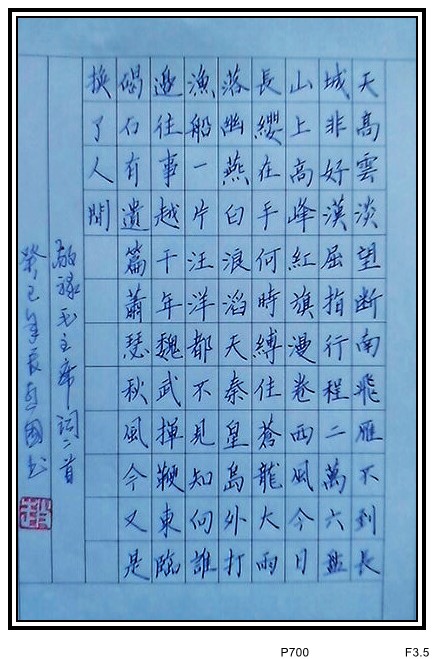 天高雲淡望断南飛雁不到長
城非好漢屈指行程二萬六盤
山上高峰紅旗漫卷西風今日
長纓在手何時縛住蒼龍大雨
落幽燕白浪滔天秦皇島外打
漁船一片汪洋都不見知向誰
邊往事越千年魏武揮鞭東臨
碣石有遺篇蕭瑟秋風今又是
换了人間
敬録毛主席詞二首
癸巳年 國书
趙
P700 F3.5